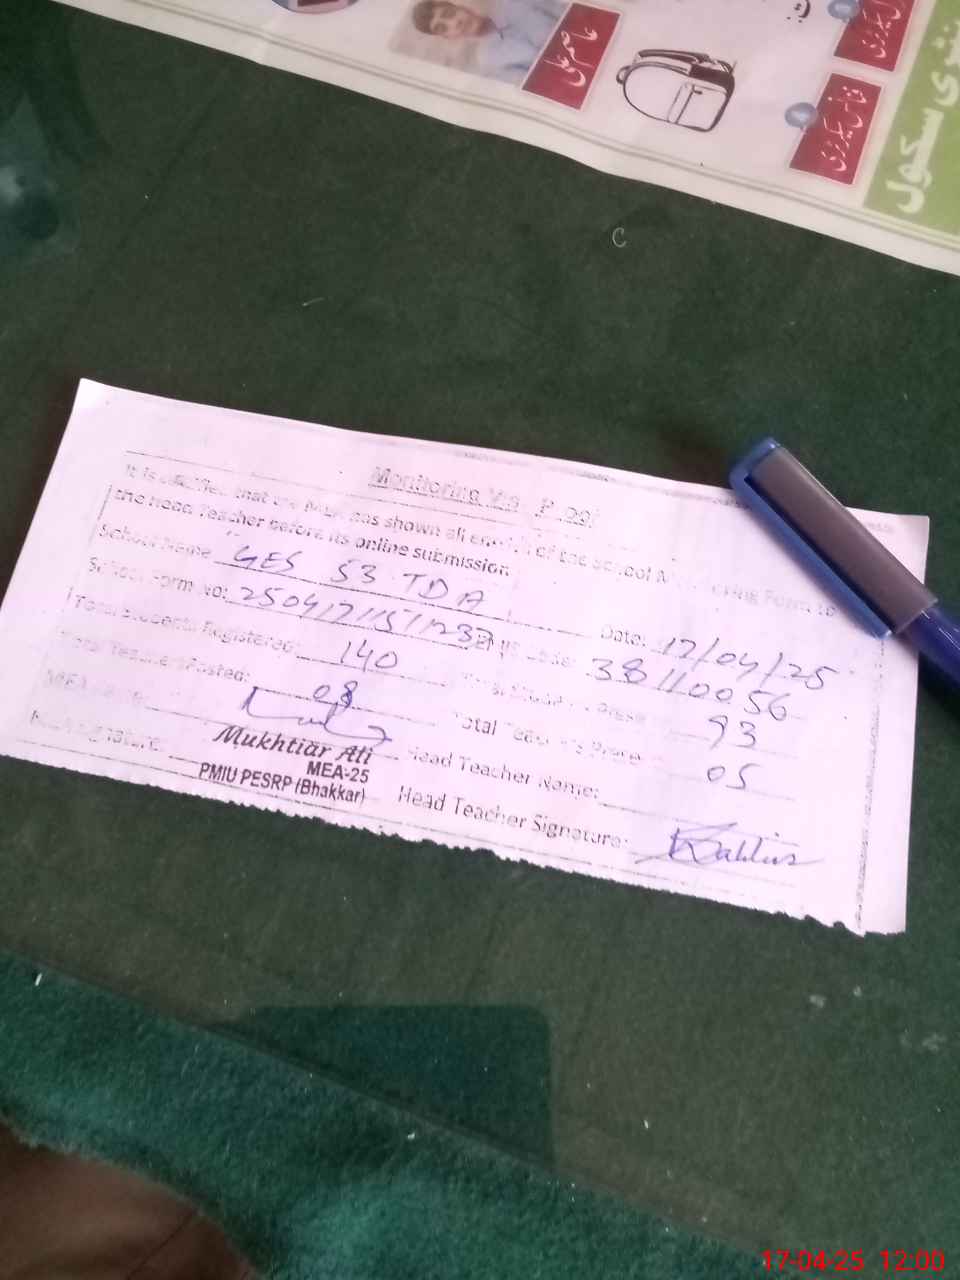 عاصم علی
سکول
Monitoring Visit Proof
It is certified that the MEA has shown all entries of the School Monitoring Form to
the Head Teacher before its online submission.
School Name GES 53 TDA Date: 17/04/25
School Form No: 38110056
Total Students Registered: 140 93
Total Teachers Posted: 08 Total Teachers Present 05
Mukhtiar Ali
MEA-25
PMIU PESRP (Bhakkar)
Head Teacher Name:
Head Teacher Signature:
17-04-25 12:00